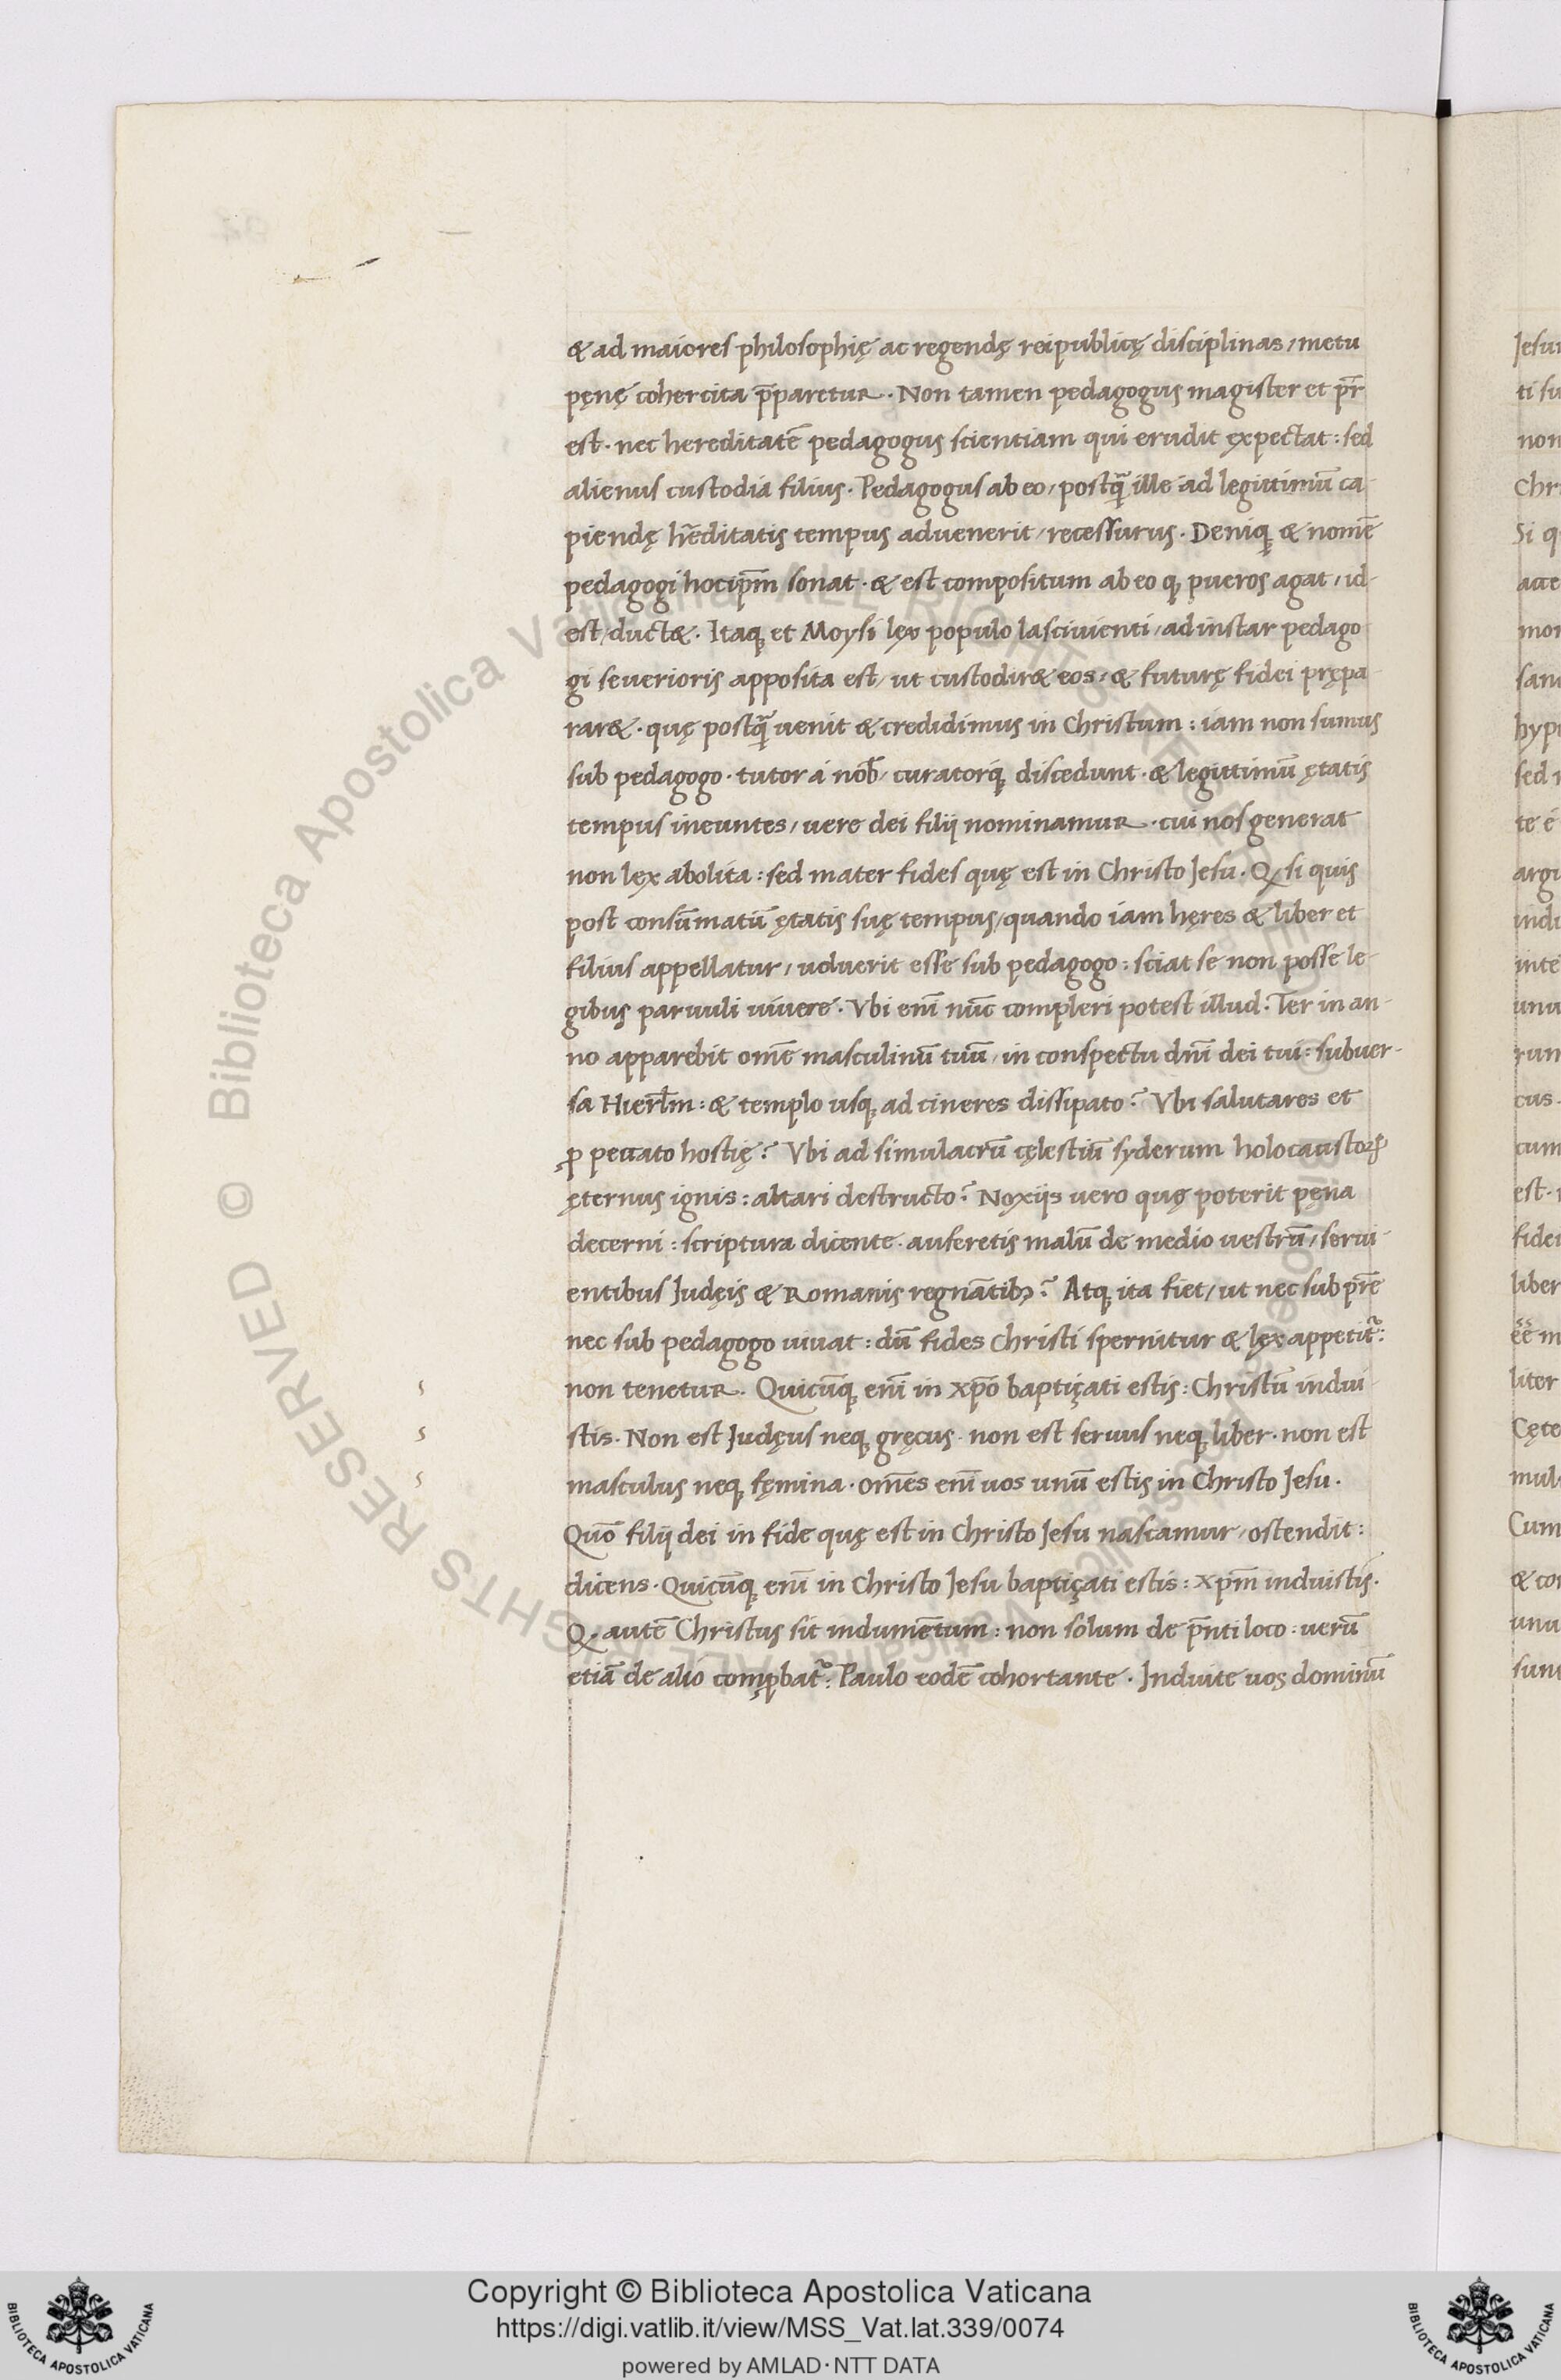 & ad maiores philosophię ac regendę reipublicę disciplinas, metu
pęnę cohercita p̄paretur. Non tamen pedagogus magister et pr̄
est. nec hereditatē pedagogus scientiam qui erudit expectat: sed
alienus custodia filius. Pedagogus ab eo, postq̄ ille ad legittimū ca-
piendę hr̄editatis tempus aduenerit, recessurus. Deniq; & nomē
pedagogi hoc ip̄m sonat. & est compositum ab eo q; pueros agat, id-
est, duc&. Itaq; et Moysi lex populo lasciuienti, ad instar pedago
gi seuerioris apposita est, ut custodir& eos, & futurę fidei prępa-
rar&. quę postq̄ uenit & credidimus in Christum: iam non sumus
sub pedagogo. tutor á nob̄, curatorq; discedunt. & legittimū ętatis
tempus ineuntes, uere dei filij nominamur. cui nos generat
non lex abolita: sed mater fides quę est in Christo Jesu. Q; si quis
post consūmatū ętatis suę tempus, quando iam hęres & liber et
filius appellatur, uoluerit esse sub pedagogo: sciat se non posse le-
gibus paruuli uiuere. Vbi enī nūc compleri potest illud. Ter in an-
no apparebit om̄e masculinū tuū, in conspectu dnī dei tui: subuer-
sa Hierl̄m: & templo usq; ad cineres dissipato? Vbi salutares et
ꝓ peccato hostię? Vbi ad simulacrū cęlestiū syderum holocaustoꝝ
ęternus ignis: altari destructo? Noxijs uero quę poterit pęna
decerni: scriptura dicente. auferetis malū de medio uestrū, serui-
entibus Judęis & Romanis regnātibꝫ? Atq; ita fiet, ut nec sub pr̄e
nec sub pedagogo uiuat: dū fides Christi spernitur & lex appetit᷑:
non tenetur. Quicūq; enī in xp̄o baptiçati estis: Christū indui-
stis. Non est Judęus neq; gręcus. non est seruus neq; liber. non est
masculus neq; fęmina. om̄es enī uos unū estis in Christo Jesu.
Quō filij dei in fide quę est in Christo Jesu nascamur, ostendit:
dicens. Quicūq; enī in Christo Jesu baptiçati estis: Xp̄m induistis.
Q; autē Christus sit indumētum: non solum de p̄nti loco: uerū
etiā de alio comꝓbat᷑: Paulo eodē cohortante. Induite uos dominū
Jesu
ti su
non
Chri
Si q
acce
mor
hyp
sed
te ē
argu
indu
inte
unu
run
cus.
cum
est.
fidei
liber
ēē m
liter
Cęte
mul
Cum
& co
unu
sunt
© Biblioteca Apostolica Vaticana ALL RIGHTS RESERVED
Copyright © Biblioteca Apostolica Vaticana
https://digi.vatlib.it/view/MSS_Vat.lat.339/0074
powered by AMLAD · NTT DATA
BIBLIOTECA APOSTOLICA VATICANA
BIBLIOTECA APOSTOLICA VATICANA